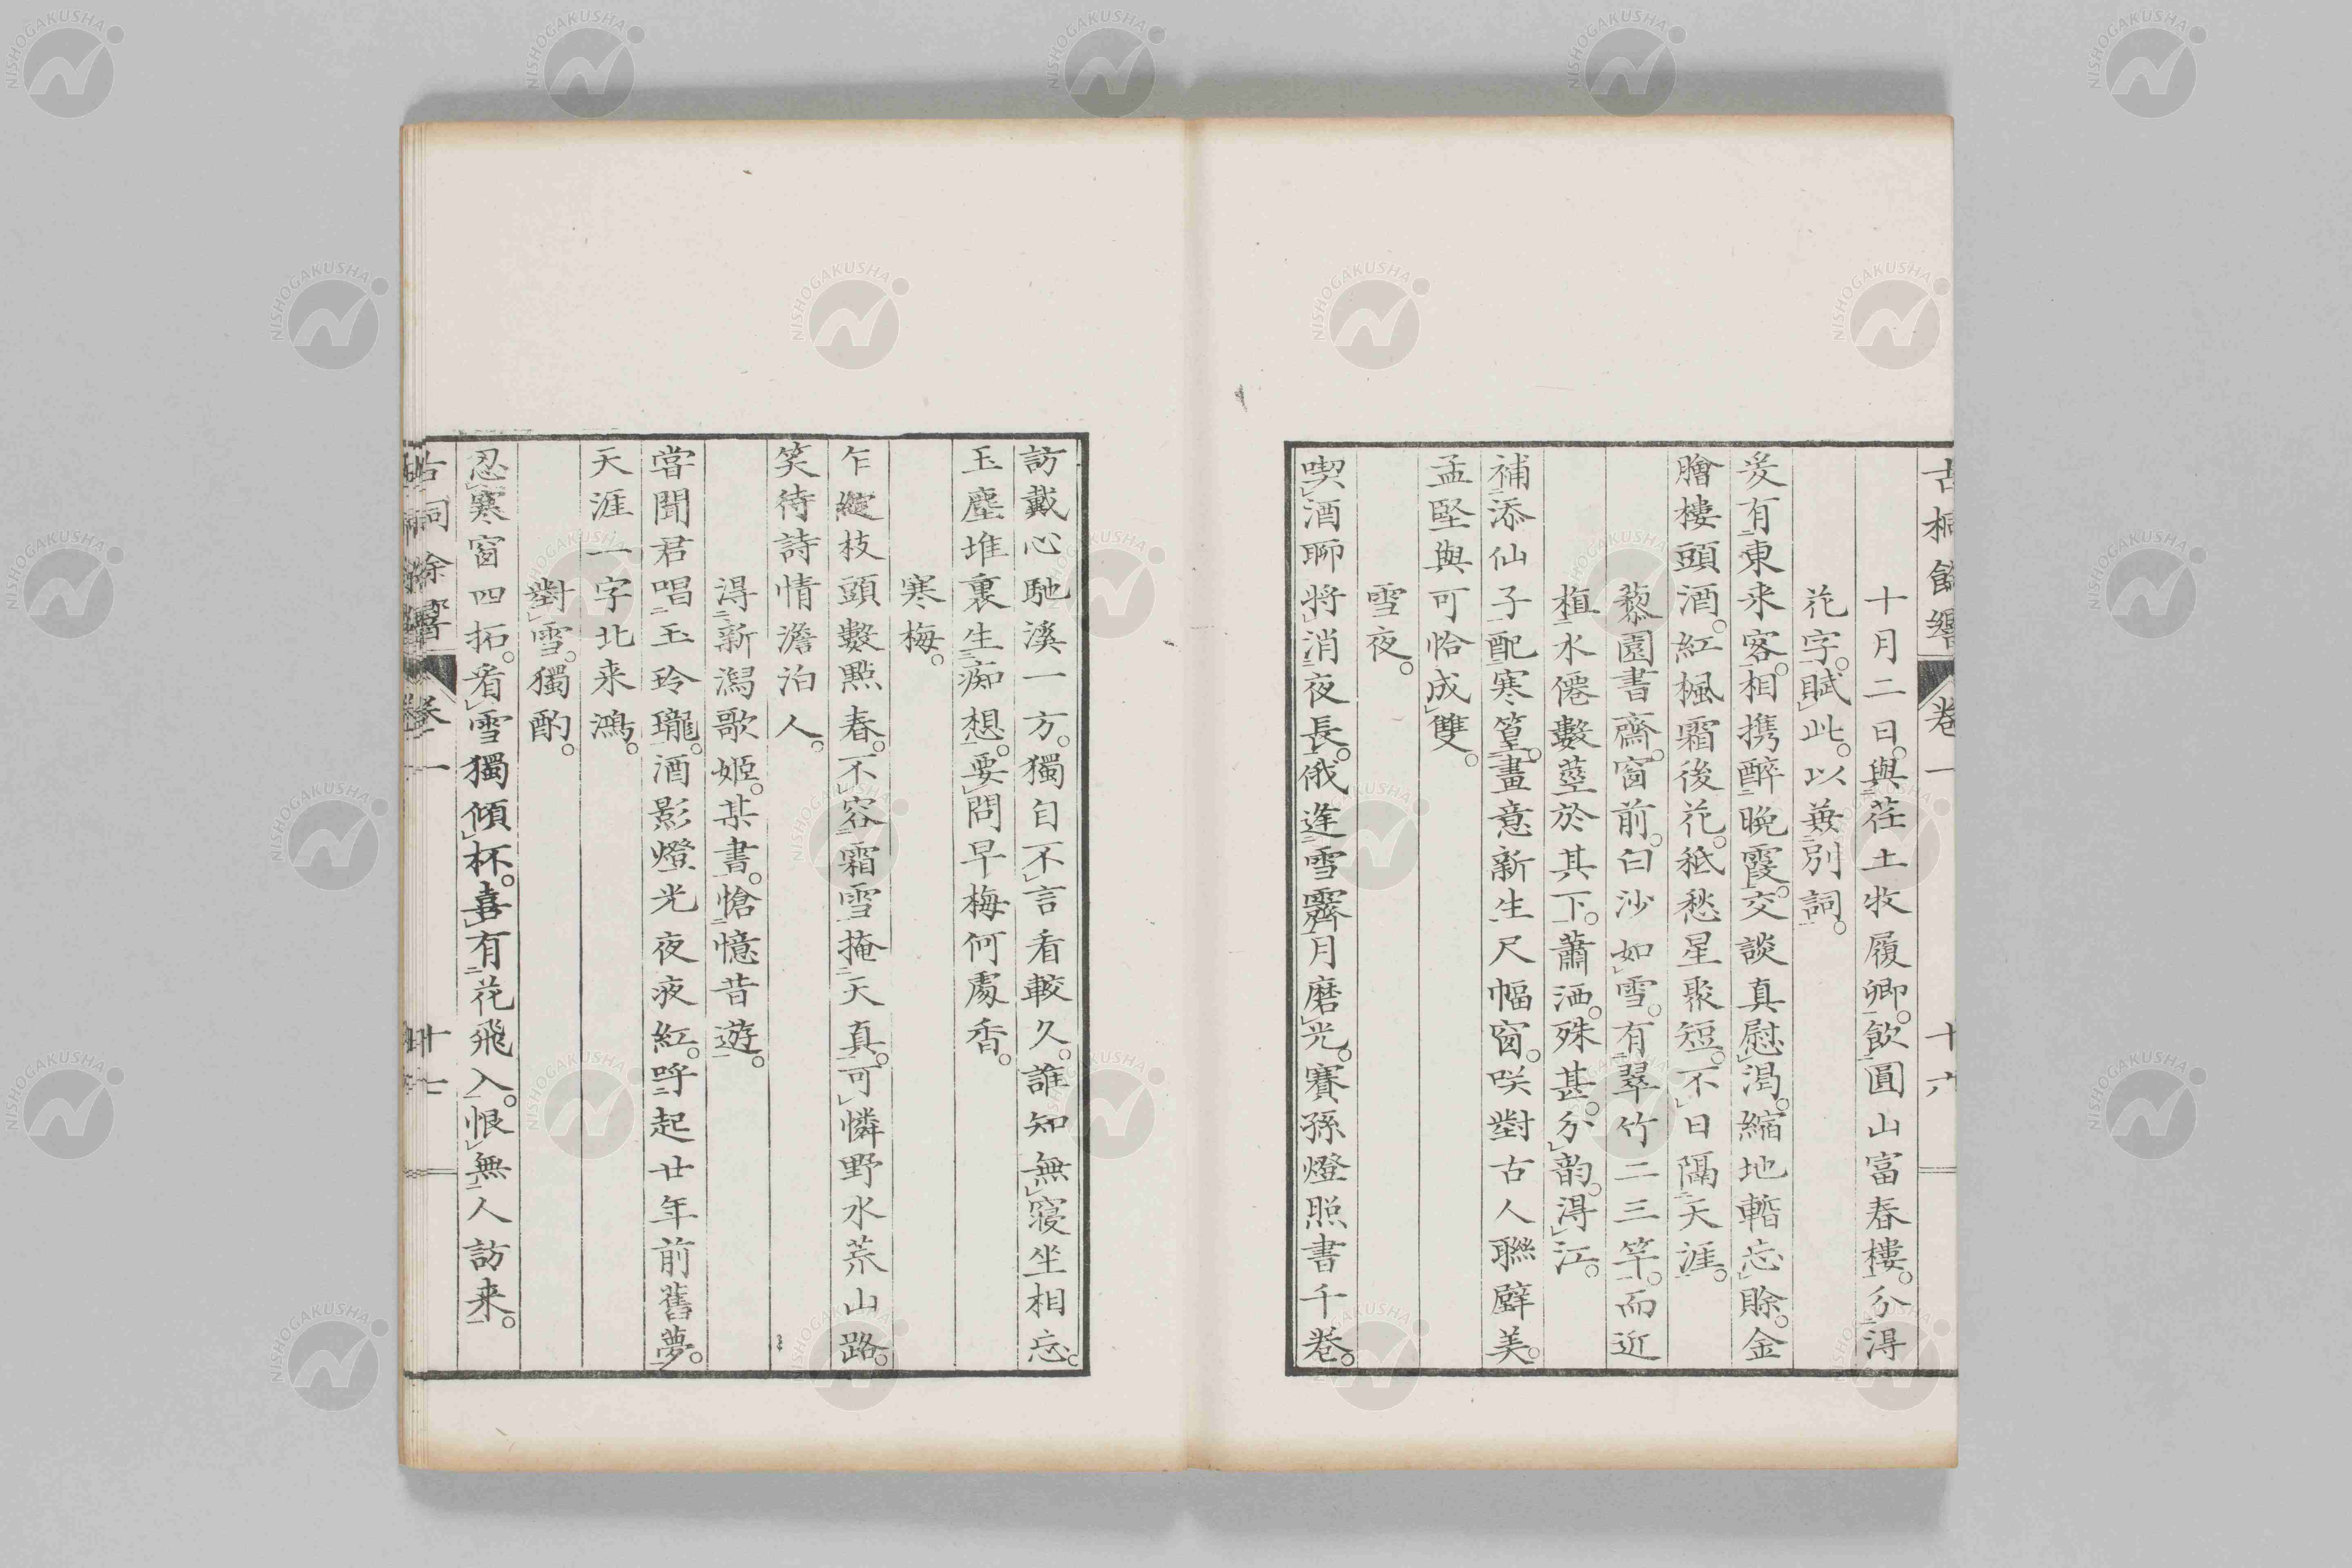 古桐餘響 卷一 十六
十月二日。與荏土牧履卿。飲圓山富春樓。分得
花字。賦此。以兼別詞。
爰有東来客。相携醉晩霞。交談真慰渇。縮地暫忘賖。金
膾樓頭酒。紅楓霜後花。秪愁星聚短。不日隔天涯。
藜園書齋。窗前。白沙如雪。有翠竹二三竿。而近
植水僊數莖於其下。蕭洒。殊甚。分韵。得江。
補添仙子配寒篁。畫意新生尺幅窗。咲對古人聯璧美。
孟堅與可恰成雙。
雪夜。
喫酒聊將消夜長。俄逢雪霽月磨光。賽孫燈照書千卷。
訪戴心馳溪一方。獨自不言看較久。誰知無寝坐相忘。
玉塵堆裏生痴想。要問早梅何處香。
寒梅。
乍綻枝頭數點春。不容霜雪掩天真。可憐野水荒山路。
笑待詩情澹泊人。
得新潟歌姬。某書。愴憶昔遊。
嘗聞君唱玉玲瓏。酒影燈光夜夜紅。呼起廿年前舊夢。
天涯一字北来鴻。
對雪。獨酌。
忍寒窗四拓。看雪獨傾杯。喜有花飛入。恨無人訪来。
古桐餘響 卷一 十七